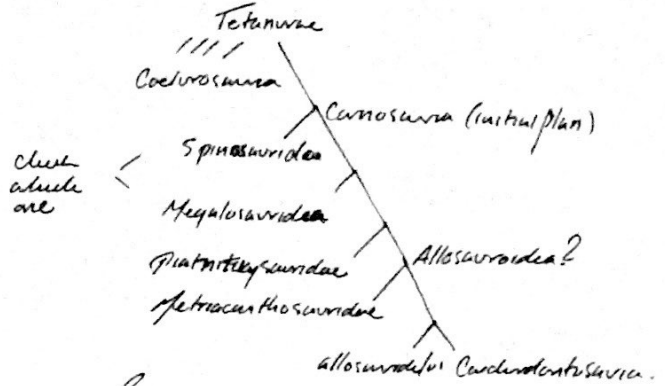 Tetanurae
Coelurosauria
Carnosauria (initial plan)
Spinosauridae
check
which
one
Megalosauridae
Piatnitzkysauridae
Allosauroidea?
Metriacanthosauridae
Carcharodontosauria.